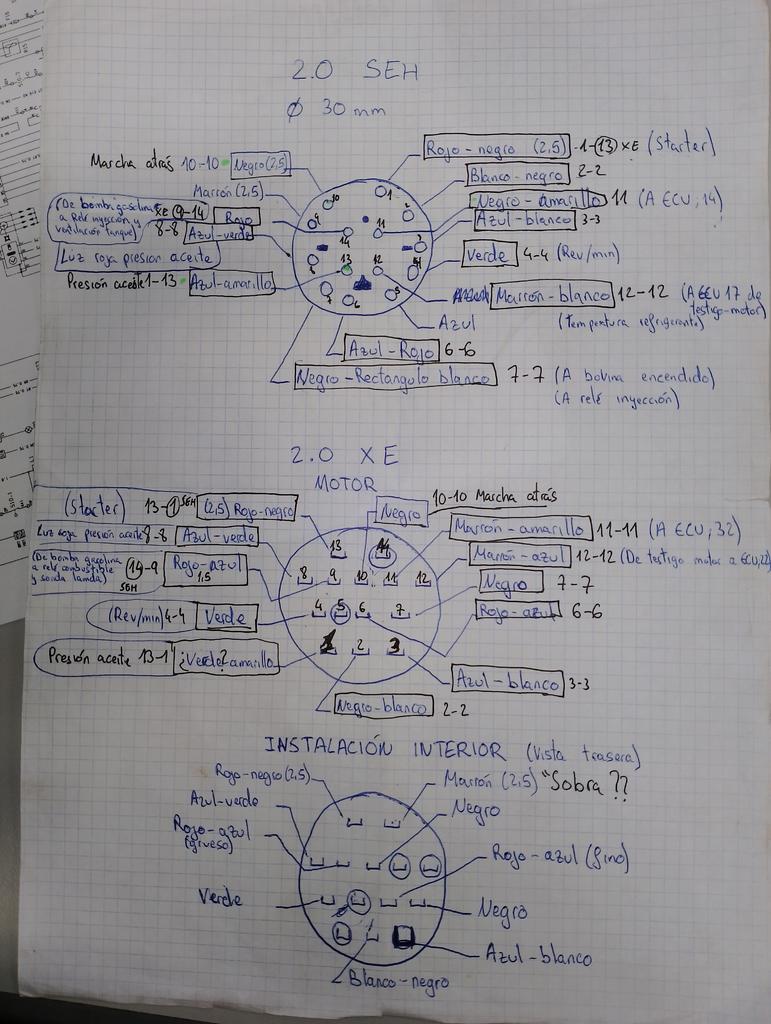 2.0 SEH
Ø 30 mm
Marcha atrás 10-10 Negro (2,5)
Rojo-negro (2,5) 1-13 XE (Starter)
Blanco-negro 2-2
Marrón (2,5)
Negro-amarillo 11 (A ECU, 14)
(De bomba gasolina a Relé inyección y ventilación tanque) XE 9-14 Rojo
Azul-blanco 3-3
8-8 Azul-verde
Luz roja presion aceite
Verde 4-4 (Rev/min)
Presión aceite 1-13 Azul-amarillo
Marrón-blanco 12-12 (A ECU 17 de testigo-motor)
(temperatura refrigerante)
Azul
Azul-Rojo 6-6
Negro-Rectangulo blanco 7-7 (A bobina encendido)
(A relé inyección)
1 2 3 4 5 6 7 8 9 10 11 12 13 14
2.0 XE
MOTOR
10-10 Marcha atrás
(Starter) 13-1 SEH (2,5) Rojo-negro
Negro
Marrón-amarillo 11-11 (A ECU, 32)
Luz roja presión aceite 8-8 Azul-verde
Marrón-azul 12-12 (De testigo motor a ECU, 22)
(De bomba gasolina a relé combustible y sonda lamda) 14-9 SEH Rojo-azul 1,5
Negro 7-7
(Rev/min) 4-4 Verde
Rojo-azul 6-6
Presión aceite 13-1 ¿Verde? amarillo
Azul-blanco 3-3
Negro-blanco 2-2
13 14
8 9 10 11 12
4 5 6 7
1 2 3
INSTALACIÓN INTERIOR (Vista trasera)
Rojo-negro (2,5)
Marrón (2,5) "Sobra ??
Azul-verde
Negro
Rojo-azul (grueso)
Rojo-azul (fino)
Verde
Negro
Azul-blanco
Blanco-negro